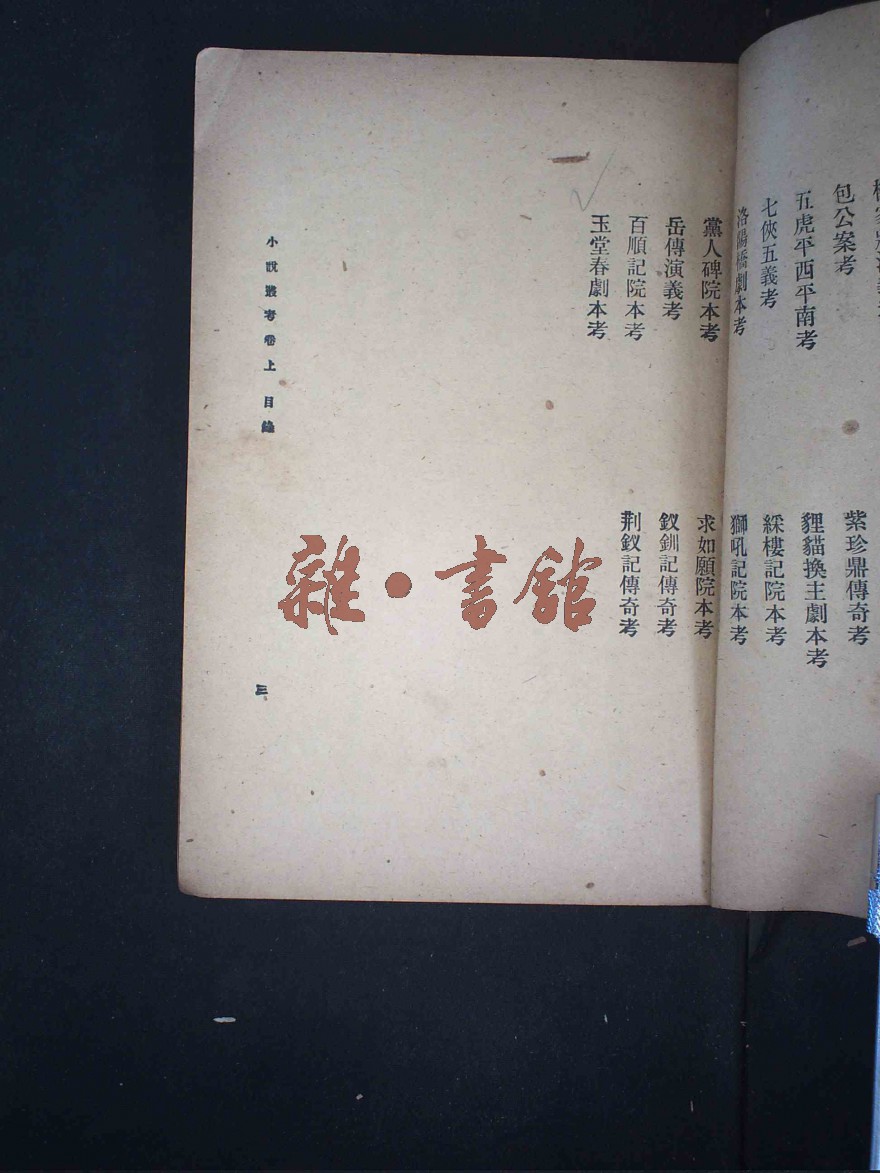 包公案考
五虎平西平南考
七俠五義考
洛陽橋劇本考
黨人碑院本考
岳傳演義考
百順記院本考
玉堂春劇本考
紫珍鼎傳奇考
貍貓換主劇本考
綵樓記院本考
獅吼記院本考
求如願院本考
釵釧記傳奇考
荆釵記傳奇考
小說叢考卷上 目錄
三
雜•書館